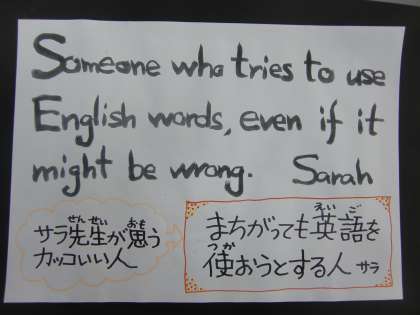 Someone who tries to use
English words, even if it
might be wrong. Sarah
サラ先生が思う
カッコいい人
まちがっても英語を
使おうとする人 サラ
せんせい
おも
えいご
つか